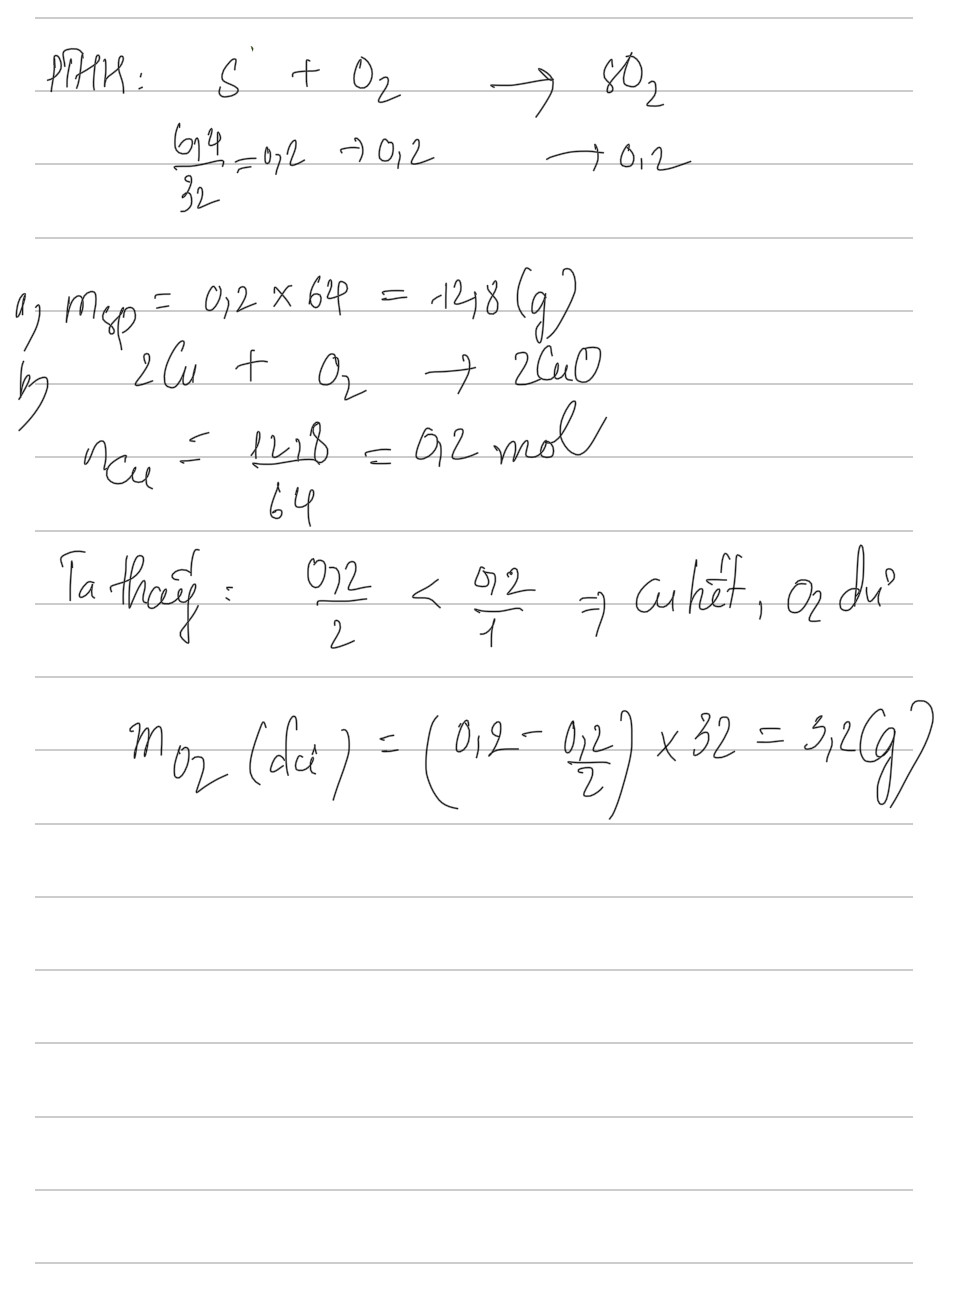 PTHH: S + O2 → SO2
6,4/32 = 0,2 → 0,2 → 0,2
a, msp = 0,2 × 64 = 12,8 (g)
b, 2Cu + O2 → 2CuO
nCu = 12,8/64 = 0,2 mol
Ta thấy: 0,2/2 < 0,2/1 ⇒ Cu hết, O2 dư
mO2 (dư) = (0,2 - 0,2/2) × 32 = 3,2 (g)